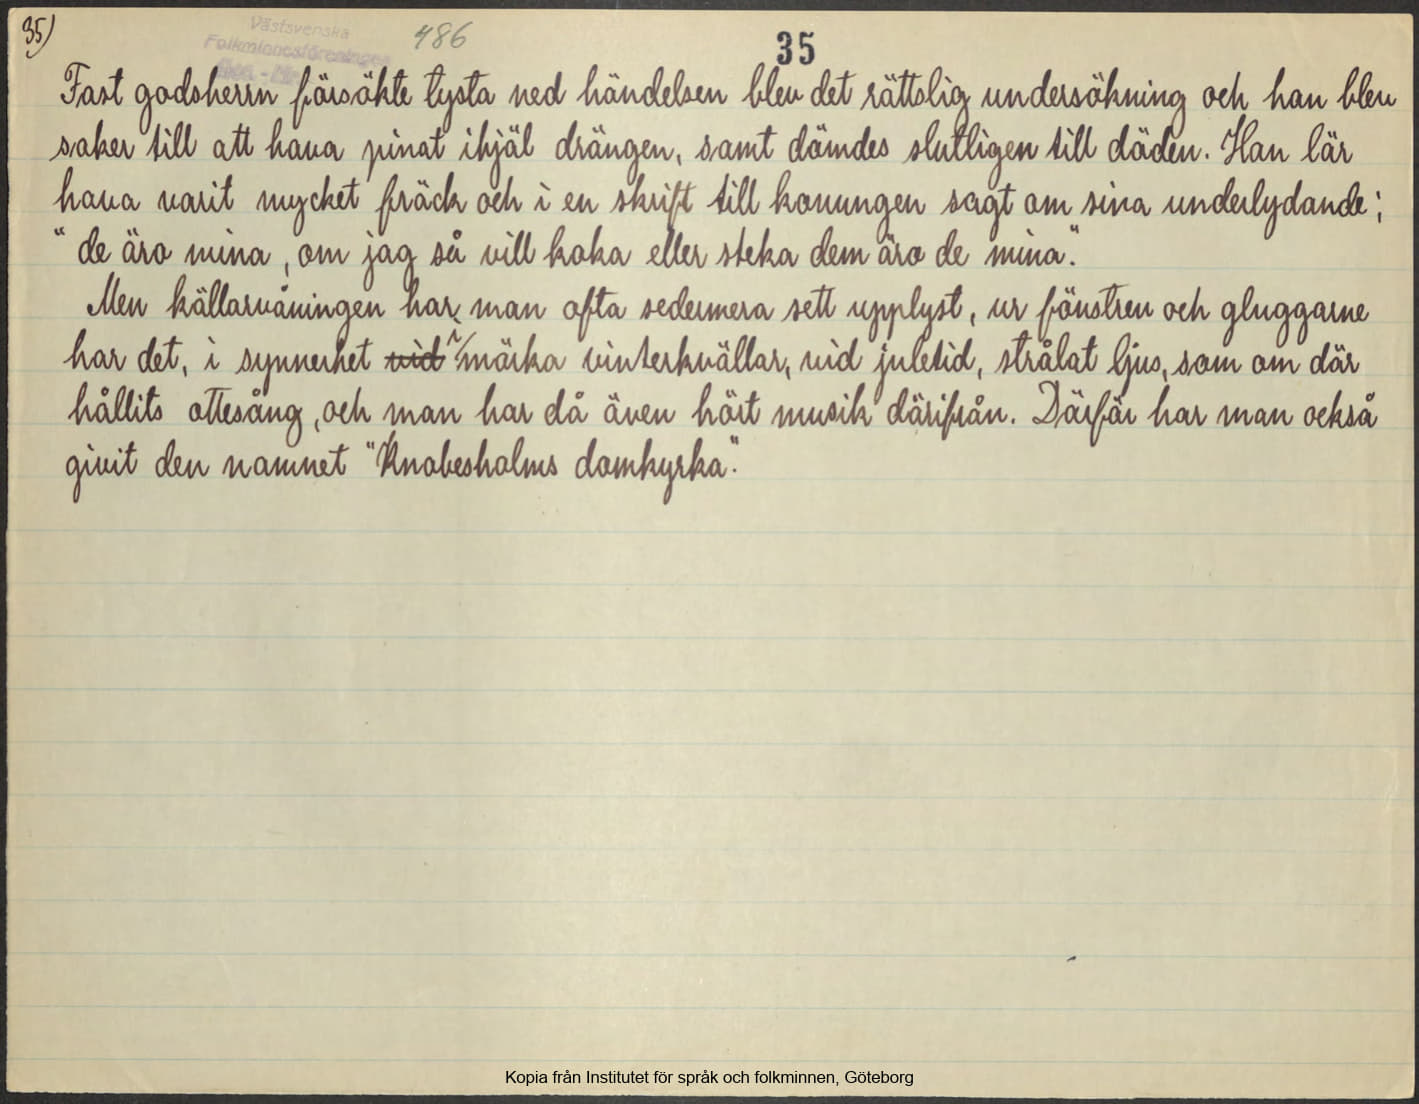 35)
Västsvenska
Folkminnesföreningen
486
35
Fast godsherrn försökte tysta ned händelsen blev det rättslig undersökning och han blev
saker till att hava pinat ihjäl drängen, samt dömdes slutligen till döden. Han lär
hava varit mycket fräck och i en skrift till konungen sagt om sina underlydande;
"de äro mina, om jag så vill koka eller steka dem äro de mina".
Men källarvåningen har man ofta sedermera sett upplyst, ur fönstren och gluggarne
har det, i synnerhet vid i mörka vinterkvällar, vid juletid, strålat ljus, som om där
hållits ottesång, och man har då även hört musik därifrån. Därför har man också
givit den namnet "Knobesholms domkyrka".
Kopia från Institutet för språk och folkminnen, Göteborg